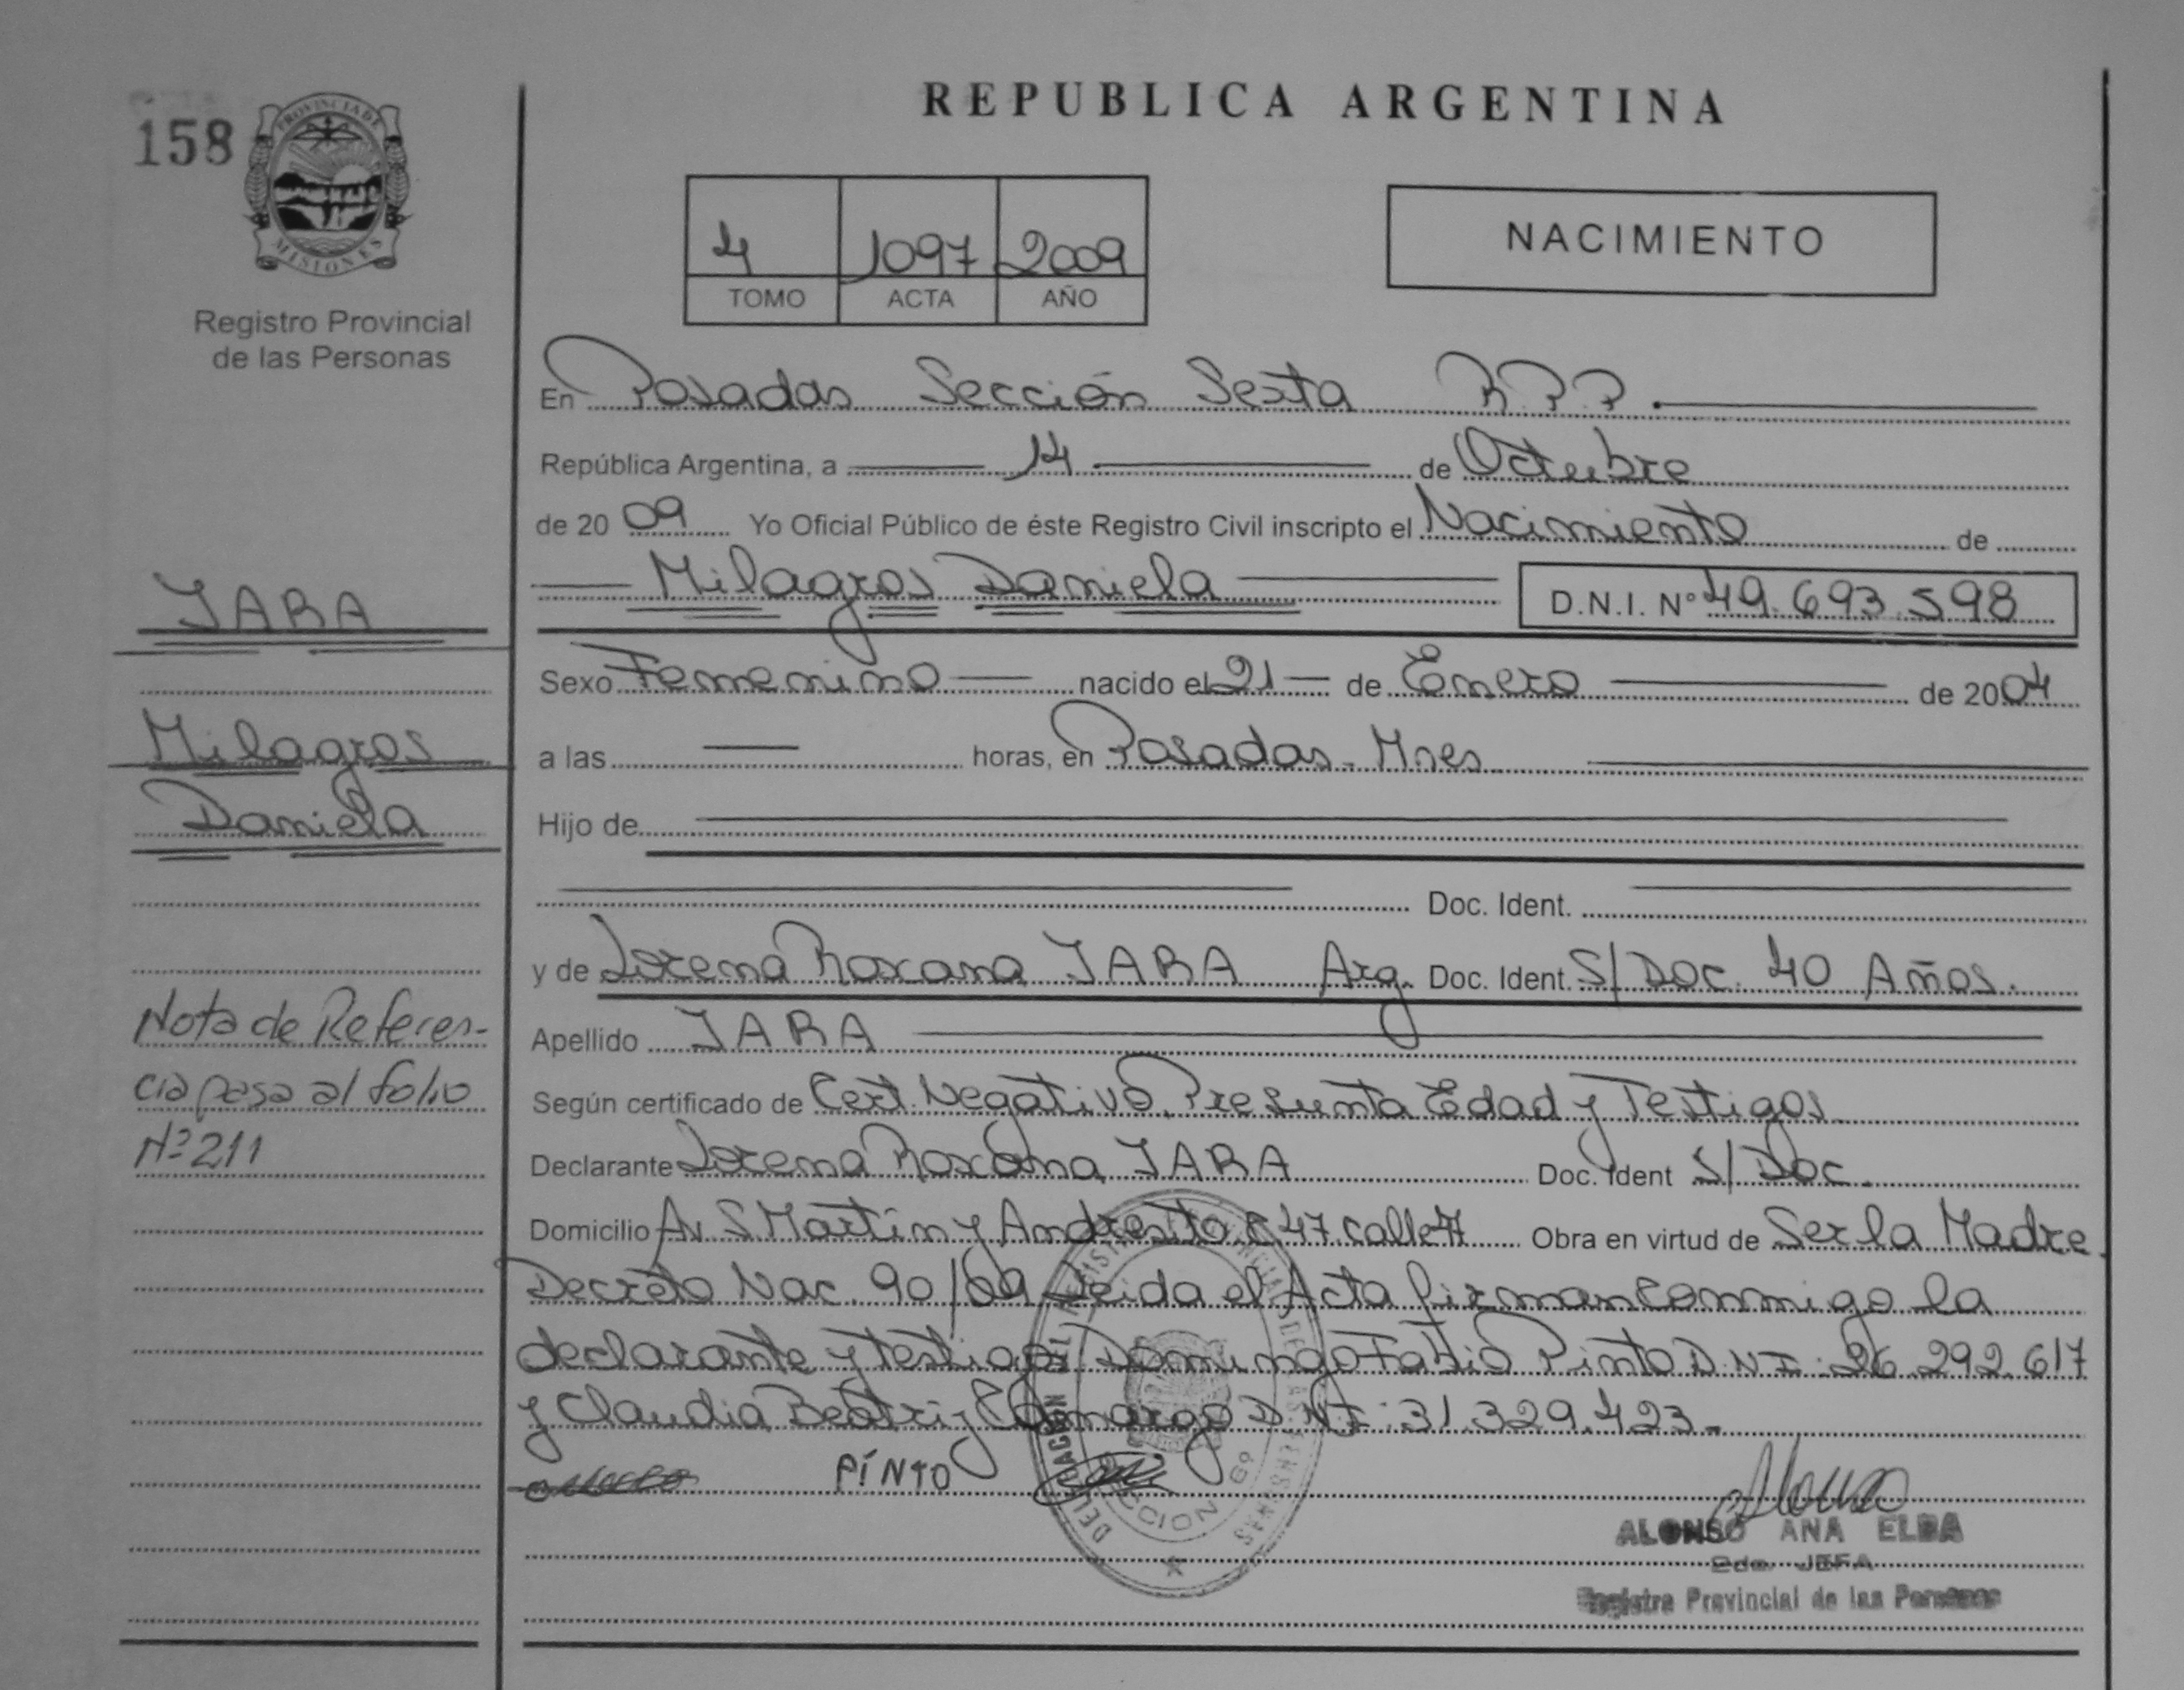 158
PROVINCIA DE
MISIONES
Registro Provincial
de las Personas
JARA
Milagros
Daniela
Nota de Referen-
cia pasa al folio
Nº 211
REPUBLICA ARGENTINA
4 1097 2009
TOMO ACTA AÑO
NACIMIENTO
En Posadas Sección Sexta R.P.P.
República Argentina, a 14 de Octubre
de 2009 Yo Oficial Público de éste Registro Civil inscripto el Nacimiento de
Milagros Daniela D.N.I. Nº 49.693.598
Sexo Femenino nacido el 21 de Enero de 2004
a las horas, en Posadas - Mnes
Hijo de
Doc. Ident.
y de Lorena Roxana JARA Arg. Doc. Ident. S/Doc. 40 Años.
Apellido JARA
Según certificado de Cert. Negativo, Presunta Edad y Testigos
Declarante Lorena Roxana JARA Doc. Ident S/Doc.
Domicilio Av. S. Martín y Andresito C 47 calle Obra en virtud de Ser la Madre
Decreto Nac. 90/09 Leida el Acta firman conmigo la
declarante y testigos Domingo Fabio Pinto D.N.I: 26.292.617
y Claudia Beatriz Camargo D.N.I: 31.329.423.-
PíNTO
ALONSO ANA ELBA
2da. JEFA
Registro Provincial de las Personas